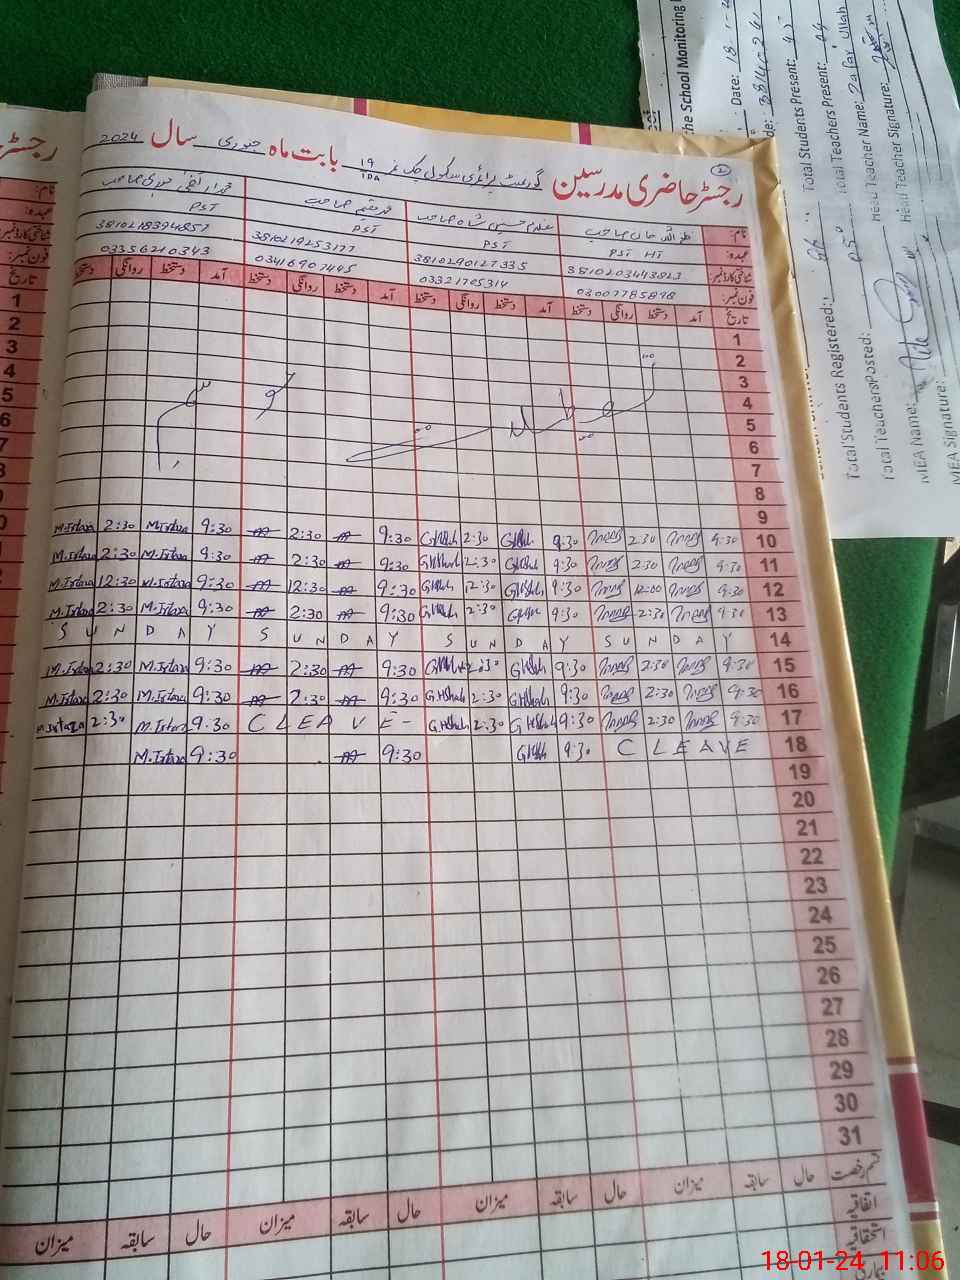 رجسٹر حاضری مدرسین گورنمنٹ پرائمری سکول چک نمبر 19/1DA بابت ماہ جنوری سال 2024
نام: ظفر اللہ خان صاحب غلام حسین شاہ صاحب محمد مقیم صاحب
عہدہ: PST HT PST PST PST
شناختی کارڈ نمبر: 3810203443823 3810290127335 3810219253177 3810218394857
فون نمبر: 03007785898 03321705314 03416907445 03356210343
تاریخ آمد دستخط روانگی دستخط آمد دستخط روانگی دستخط آمد دستخط روانگی دستخط آمد دستخط روانگی دستخط
1
2
3
4
5
6
7
8
تعطیلات
موسم
9
M.Irtaza 2:30 M.Irtaza 9:30 2:30 9:30 GHShah 2:30 GHShah 9:30 2:30 9:30 10
M.Irtaza 2:30 M.Irtaza 9:30 2:30 9:30 GHShah 2:30 GHShah 9:30 2:30 9:30 11
M.Irtaza 12:30 M.Irtaza 9:30 12:30 9:30 GHShah 12:30 GHShah 9:30 12:00 9:30 12
M.Irtaza 2:30 M.Irtaza 9:30 2:30 9:30 GHShah 2:30 GHShah 9:30 2:30 9:30 13
SUNDAY SUNDAY SUNDAY SUNDAY 14
M.Irtaza 2:30 M.Irtaza 9:30 2:30 9:30 GHShah 2:30 GHShah 9:30 2:30 9:30 15
M.Irtaza 2:30 M.Irtaza 9:30 2:30 9:30 GHShah 2:30 GHShah 9:30 2:30 9:30 16
M.Irtaza 2:30 M.Irtaza 9:30 C LEAVE - GHShah 2:30 GHShah 9:30 2:30 9:30 17
M.Irtaza 9:30 9:30 GHShah 9:30 C LEAVE 18
19
20
21
22
23
24
25
26
27
28
29
30
31
قسم رخصت حال سابقہ میزان حال سابقہ میزان حال سابقہ میزان حال سابقہ میزان
اتفاقیہ
استحقاقیہ
بیماری
the School Monitoring
Date: 18-1-2
Total Students Registered: Total Students Present: 45
Total Teachers Posted: 05 Total Teachers Present: 04
Head Teacher Name: Zafar Ullah
MEA Name: Head Teacher Signature:
MEA Signature:
18-01-24 11:06